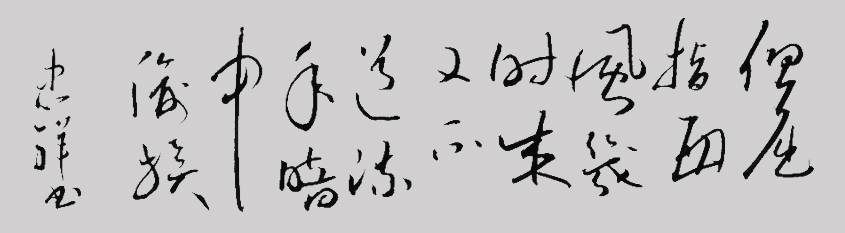 但屈
指西
風幾
时来
又不
道流
年暗
中
偷换
忠祥书